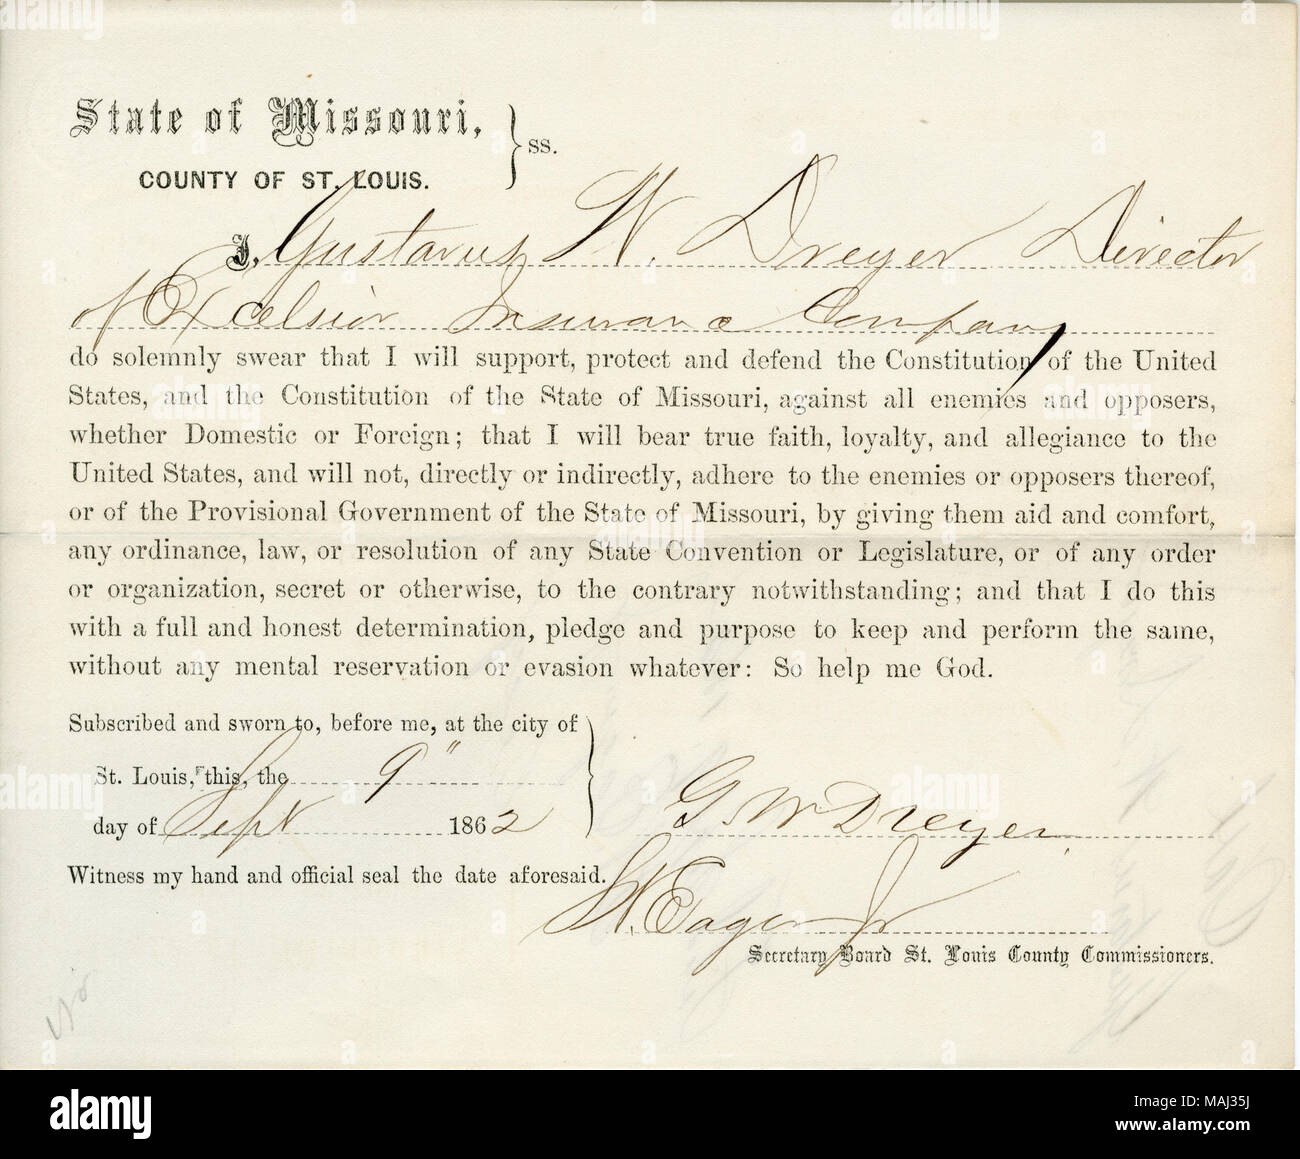 State of Missouri,
COUNTY OF ST. LOUIS. } ss.
I, Gustavus W. Dreyer Director
of Excelsior Insurance Company
do solemnly swear that I will support, protect and defend the Constitution of the United
States, and the Constitution of the State of Missouri, against all enemies and opposers,
whether Domestic or Foreign; that I will bear true faith, loyalty, and allegiance to the
United States, and will not, directly or indirectly, adhere to the enemies or opposers thereof,
or of the Provisional Government of the State of Missouri, by giving them aid and comfort,
any ordinance, law, or resolution of any State Convention or Legislature, or of any order
or organization, secret or otherwise, to the contrary notwithstanding; and that I do this
with a full and honest determination, pledge and purpose to keep and perform the same,
without any mental reservation or evasion whatever: So help me God.
Subscribed and sworn to, before me, at the city of
St. Louis, this, the 9"
day of Sept 1862
G. W. Dreyer
Witness my hand and official seal the date aforesaid.
W. Eager Jr
Secretary Board St. Louis County Commissioners.
alamy
Image ID: MAJ35J
www.alamy.com